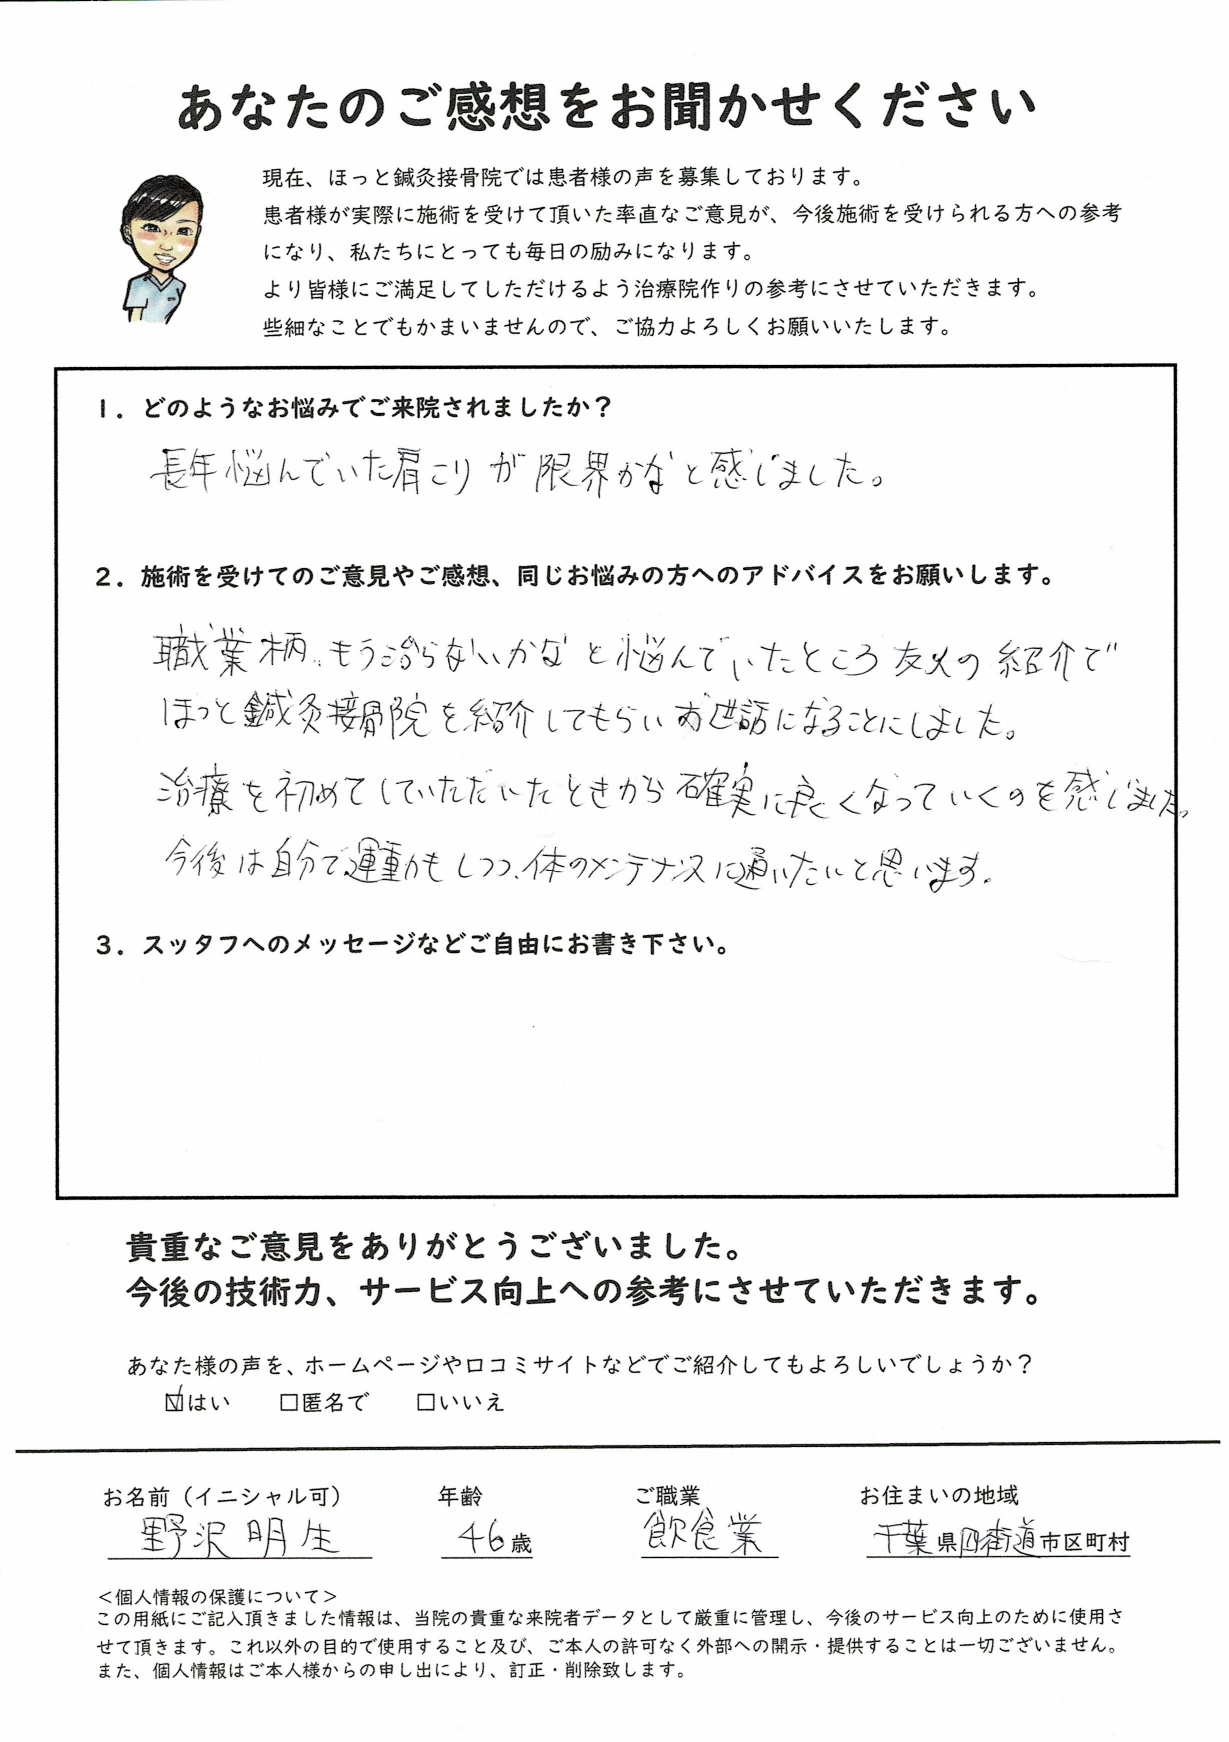 あなたのご感想をお聞かせください
現在、ほっと鍼灸接骨院では患者様の声を募集しております。
患者様が実際に施術を受けて頂いた率直なご意見が、今後施術を受けられる方への参考
になり、私たちにとっても毎日の励みになります。
より皆様にご満足してしただけるよう治療院作りの参考にさせていただきます。
些細なことでもかまいませんので、ご協力よろしくお願いいたします。
1. どのようなお悩みでご来院されましたか？
長年悩んでいた肩こりが限界かなと感じました。
2. 施術を受けてのご意見やご感想、同じお悩みの方へのアドバイスをお願いします。
職業柄、もう治らないかなと悩んでいたところ友人の紹介で
ほっと鍼灸接骨院を紹介してもらいお世話になることにしました。
治療を初めてしていただいたときから確実に良くなっていくのを感じました。
今後は自分で運動もしつつ、体のメンテナンスに通いたいと思います。
3. スッタフへのメッセージなどご自由にお書き下さい。
貴重なご意見をありがとうございました。
今後の技術力、サービス向上への参考にさせていただきます。
あなた様の声を、ホームページや口コミサイトなどでご紹介してもよろしいでしょうか？
☑はい □匿名で □いいえ
お名前（イニシャル可） 年齢 ご職業 お住まいの地域
野沢明生 46歳 飲食業 千葉県四街道市区町村
＜個人情報の保護について＞
この用紙にご記入頂きました情報は、当院の貴重な来院者データとして厳重に管理し、今後のサービス向上のために使用さ
せて頂きます。これ以外の目的で使用すること及び、ご本人の許可なく外部への開示・提供することは一切ございません。
また、個人情報はご本人様からの申し出により、訂正・削除致します。